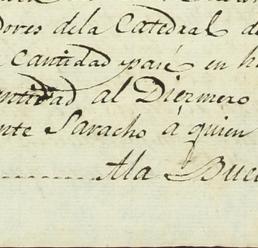 dores dela Catedral de
Cantidad pasé en
entidad al Diezmero
nte Saracho á quien
Ala Bue